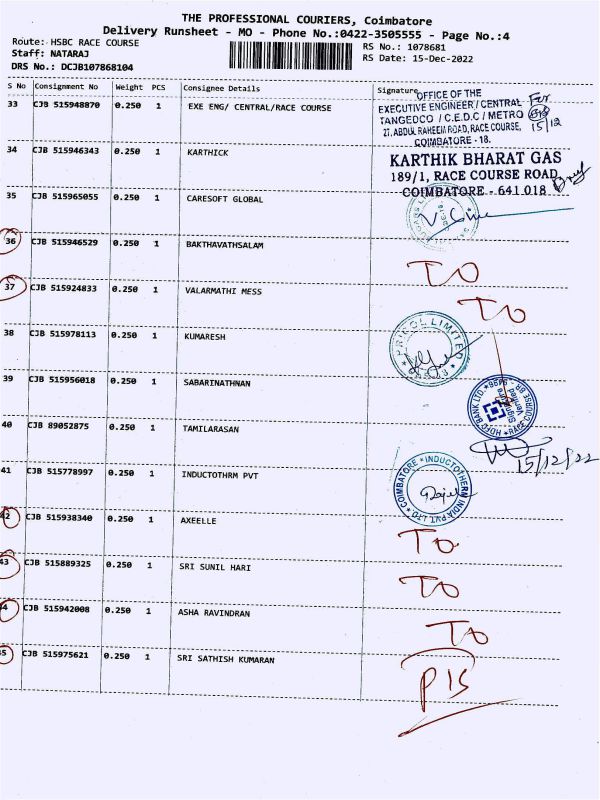 THE PROFESSIONAL COURIERS, Coimbatore
Delivery Runsheet - MO - Phone No.:0422-3505555 - Page No.:4
Route: HSBC RACE COURSE
RS No.: 1078681
Staff: NATARAJ
RS Date: 15-Dec-2022
DRS No.: DCJB107868104
S No Consignment No Weight PCS Consignee Details Signature
33 CJB 515948870 0.250 1 EXE ENG/ CENTRAL/RACE COURSE
OFFICE OF THE
EXECUTIVE ENGINEER/CENTRAL For
TANGEDCO / C.E.D.C / METRO
27, ABDUL RAHEEM ROAD, RACE COURSE, 15/12
COIMBATORE - 18.
34 CJB 515946343 0.250 1 KARTHICK
KARTHIK BHARAT GAS
189/1, RACE COURSE ROAD,
COIMBATORE - 641 018
35 CJB 515965055 0.250 1 CARESOFT GLOBAL
36 CJB 515946529 0.250 1 BAKTHAVATHSALAM
TO
37 CJB 515924833 0.250 1 VALARMATHI MESS
TO
38 CJB 515978113 0.250 1 KUMARESH
PRICOL LIMITED
39 CJB 515956018 0.250 1 SABARINATHNAN
HDFC BANK LTD. * RACE COURSE - BR
Signature
Verified
40 CJB 89052875 0.250 1 TAMILARASAN
15/12/22
41 CJB 515778997 0.250 1 INDUCTOTHRM PVT
COIMBATORE * INDUCTOTHERM INDIA PVT LTD
42 CJB 515938340 0.250 1 AXEELLE
TO
43 CJB 515889325 0.250 1 SRI SUNIL HARI
TO
44 CJB 515942008 0.250 1 ASHA RAVINDRAN
TO
45 CJB 515975621 0.250 1 SRI SATHISH KUMARAN